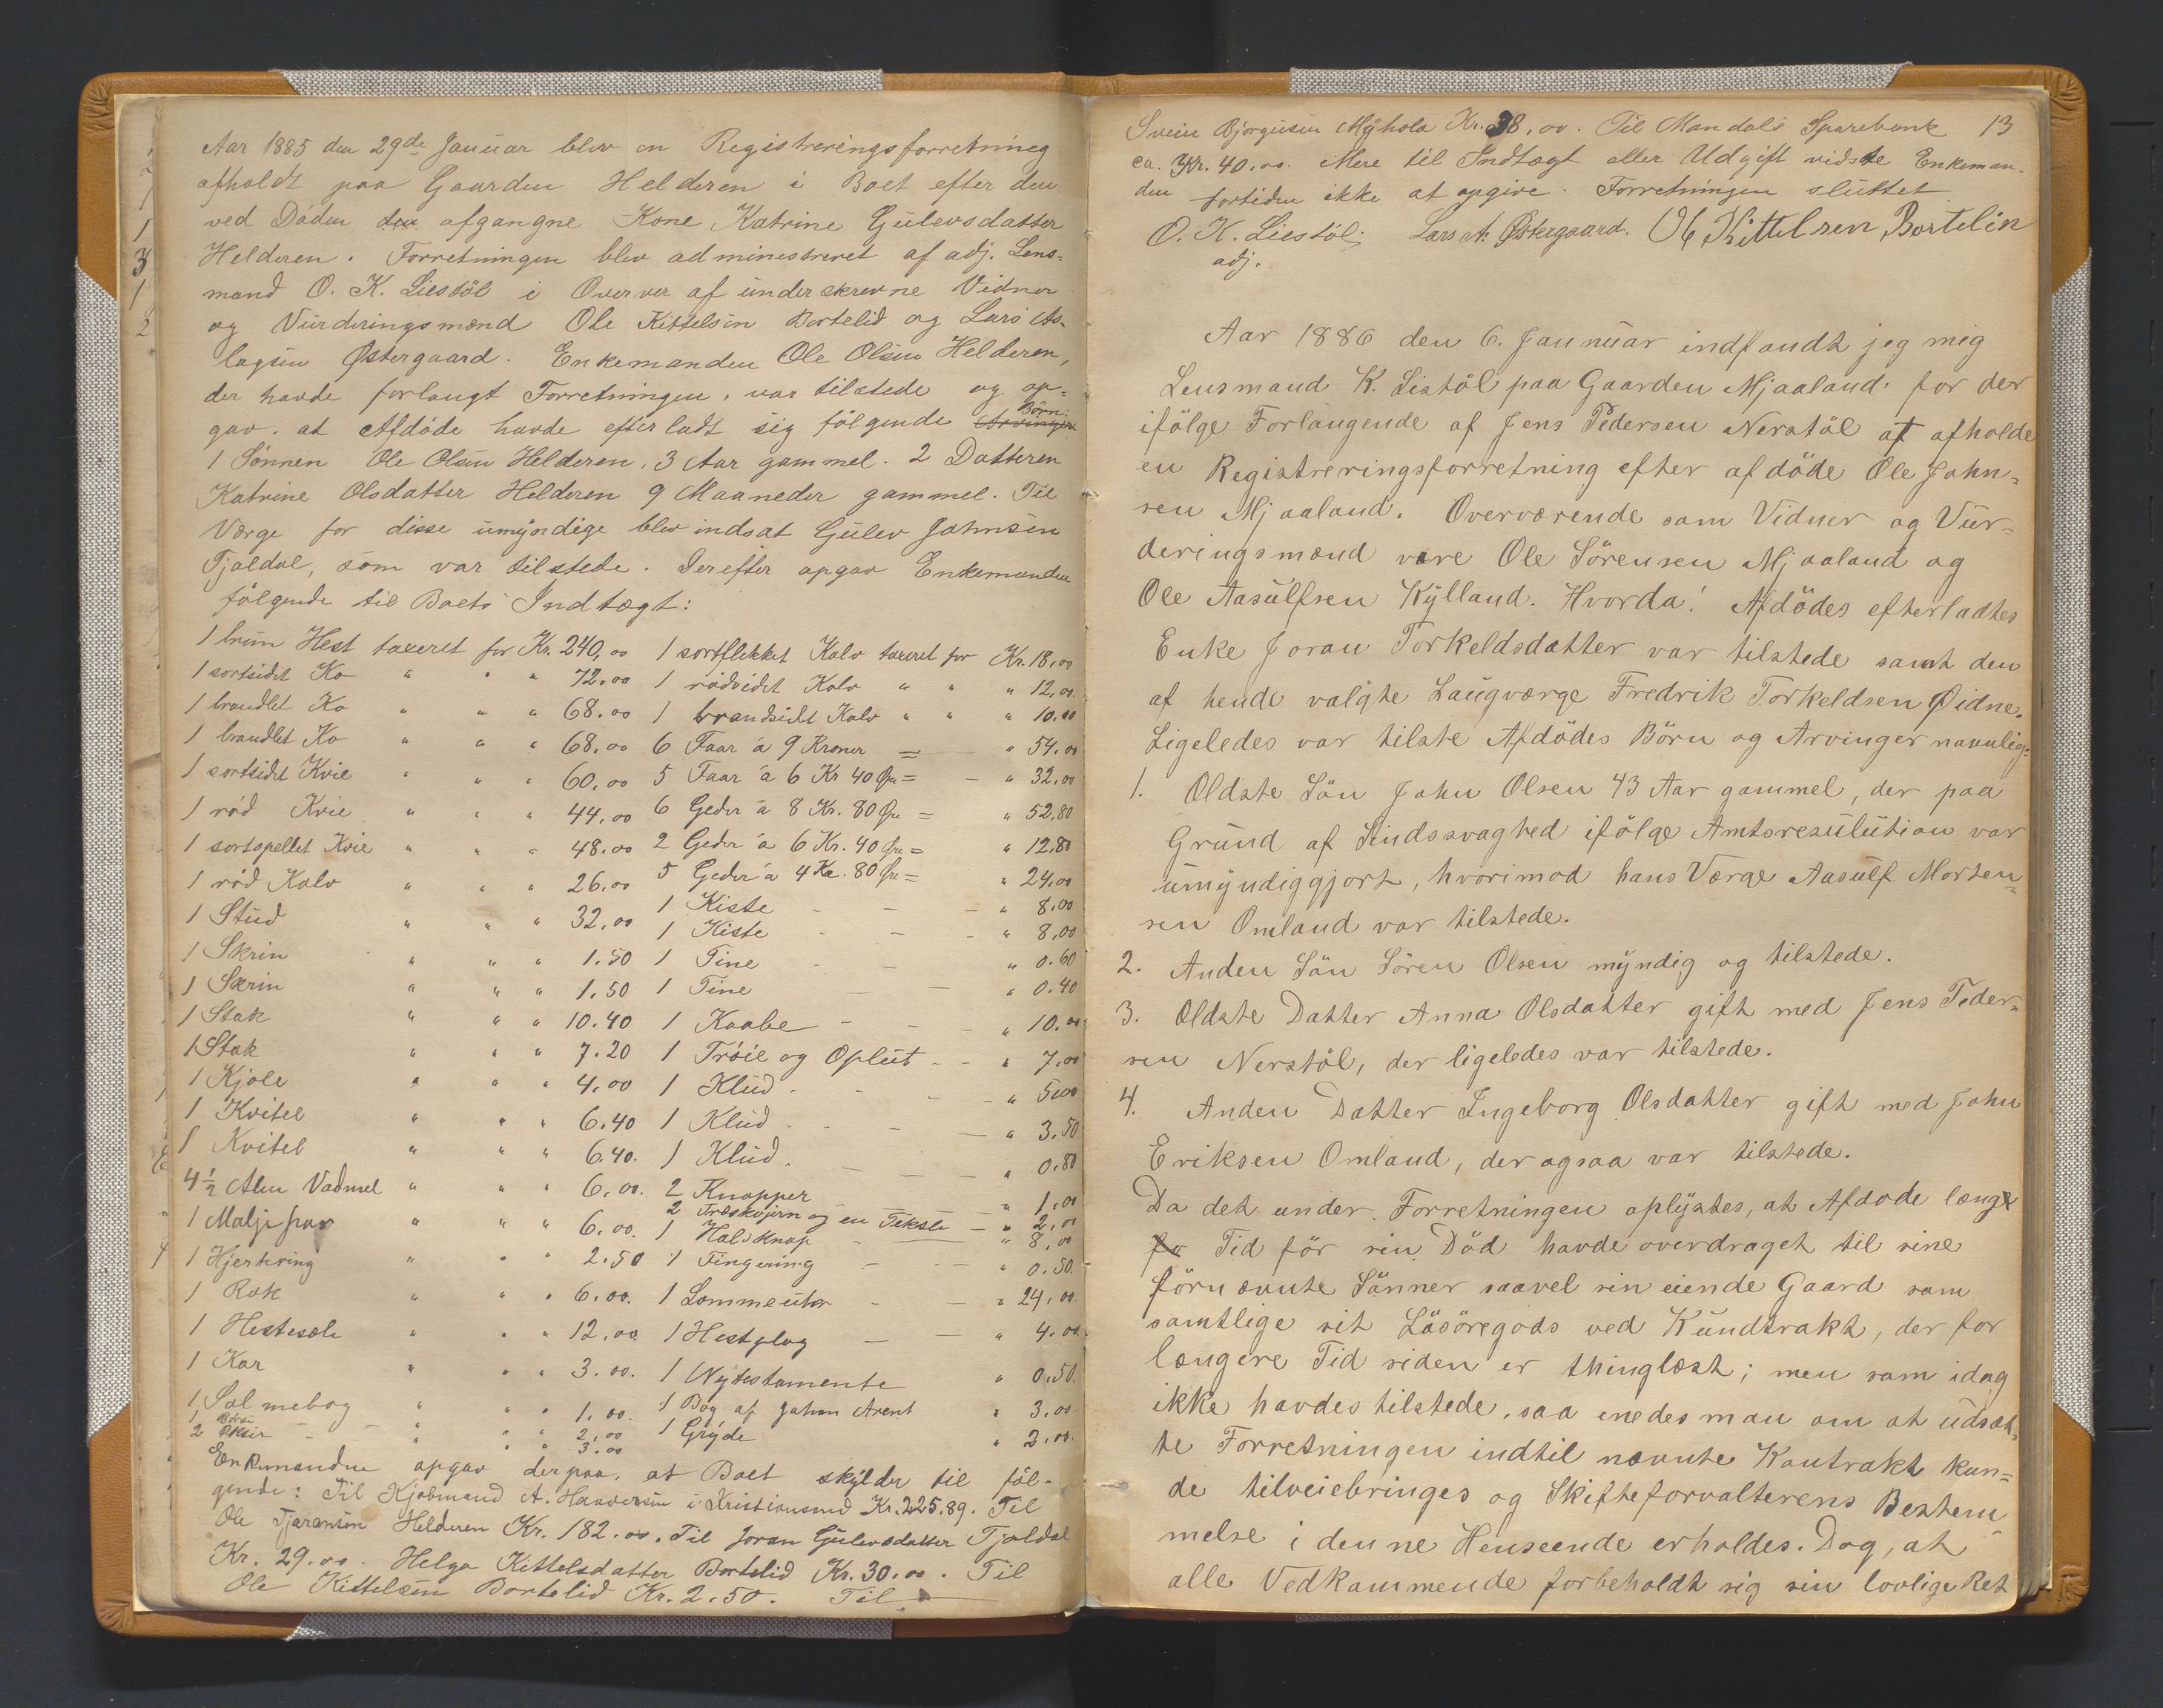 Aar 1885 den 29de Januar blev en Registreringsforretning
afholdt paa Gaarden Helderen i Boet efter den
ved Döden den afgangne Kone Katrine Gulevsdatter
Helderen. Forretningen blev administreret af adj. Lens=
mand O. K. Liestöl i Overver af underskrevne Vidner
og Vurderingsmænd Ole Kittelsen Bortelid og Lars As-
lagsen Østergaard. Enkemanden Ole Olsen Helderen,
der havde forlangt Forretningen, var tilstede og op=
gav. at Afdöde havde efterladt sig fölgende Arvinger Börn:
1 Sönnen Ole Olsen Helderen, 3 Aar gammel. 2 Datteren
Katrine Olsdatter Helderen 9 Maaneder gammel. Til
Værge for disse umyndige blev indsat Gulev Johnsen
Tjaldal, som var tilstede. Derefter opgav Enkemanden
fölgende til Boets Indtægt:
1 brun Hest taxeret for Kr. 240,00 1 sortflekket Kalv taxeret for Kr. 18,00
1 sortsidet Ko " " " 72.00 1 rödsidet Kalv " " " 12,00.
1 brandlet Ko " " " 68.00 1 brandsidet Kalv " " " 10.00
1 brandlet Ko " " " 68,00 6 Faar á 9 Kroner = — " 54.00
1 sortsidet Kvie " " " 60,00 5 Faar á 6 Kr 40 Øre = — " 32,00
1 röd Kvie " " " 44,00 6 Geder á 8 Kr. 80 Øre = " 52,80
1 sortspellet Kvie " " " 48.00 2 Geder á 6 Kr. 40 Øre = " 12,80
1 röd Kalv " " " 26,00 5 Geder á 4 Kr. 80 Øre = " 24,00
1 Stud " " " 32,00 1 Kiste - — — " 8,00
1 Skrin " " " 1.50 1 Kiste - — - " 8,00
1 Skrin " " " 1.50 1 Tine - — " 0.60
1 Stak " " " 10.40 1 Tine — — " 0.40
1 Stak " " " 7.20 1 Kaabe - — — " 10.00
1 Kjole " " " 4.00 1 Tröie og Oplut — — " 7,00
1 Kvitel " " " 6.40 1 Klud - - — " 5,00
1 Kvitel " " " 6.40. 1 Klud - — — " 3.50
4½ Alen Vadmel " " " 6,00. 1 Klud. — — " 0.80
1 Maljepar " " " 6.00. 2 Knapper — " 1,00
2 Træskojern og en Tekste — " 2,00
1 Hjertering " " " 2.50 1 Halsknap " 8,00
1 Rok " " " 6.00. 1 Fingering — — " 0.50.
1 Hestesele " " " 12.00 1 Lommeuhr - — " 24,00.
1 Kar " " " 3.00. 1 Hestplog — — " 4.00
1 Salmebog " " " 1.00. 1 Nytestamente " 0.50.
1 Börse - - " " " 2,00 1 Bog af Johan Arent " 3,00
2 Økser — — " " " 3.00 1 Gryde " 2,00.
Enkemanden opgav derpaa, at Boet skylder til föl-
gende: Til Kjöbmand A. Haavorsen i Kristianssand Kr. 225.89. Til
Ole Tjøransen Helderen Kr. 182.00. Til Joran Gulevsdatter Tjaldal
Kr. 29.00. Helga Kittelsdatter Bortelid Kr. 30.00. Til
Ole Kittelsen Bortelid Kr. 2.50. Til
Svein Bjorgusen Myhola Kr. 38,00. Til Mandals Sparebank 13
ca. Kr. 40.00. Mere til Indtægt eller Udgift vidste Enkeman-
den fortiden ikke at opgive. Forretningen sluttet
O. K. Liestöl; Lars A. Østergaard. Ole Kittelsen Bortelin
adj.
Aar 1886 den 6. Januuar indfandt jeg mig
Lensmand K. Listöl paa Gaarden Mjaaland for der
ifölge Forlangende af Jens Pedersen Nerstöl at afholde
en Registreringsforretning efter afdöde Ole John=
sen Mjaaland. Overværende som Vidner og Vur=
deringsmænd vare Ole Sörensen Mjaaland og
Ole Aasulfsen Kylland. Hvorda! Afdödes efterladtes
Enke Joran Torkeldsdatter var tilstede samt den
af hende valgte Laugværge Fredrik Torkeldsen Øidne.
Ligeledes var tilste Afdödes Börn og Arvinger navnlig:
1. Oldste Sön John Olsen 43 Aar gammel, der paa
Grund af Sindssvaghed ifölge Amtsresulution var
umyndiggjort, hvorimod hans Værge Aasulf Morten=
sen Omland var tilstede.
2. Anden Sön Sören Olsen myndig og tilstede.
3. Oldste Datter Anna Olsdatter gift med Jens Peder=
sen Nerstöl, der ligeledes var tilstede.
4. Anden Datter Ingeborg Olsdatter gift med John
Eriksen Omland, der ogsaa var tilstede.
Da det under Forretningen oplystes, at Afdode længe
fo Tid för sin Död havde overdraget til sine
förnævnte Sönner saavel sin eiende Gaard som
samtlige sit Lösöregods ved Kundtrakt, der for
længere Tid siden er thinglæst; men som idag
ikke havdes tilstede, saa enedes man om at udsæt=
te Forretningen indtil nævnte Kontrakt kun=
de tilveiebringes og Skifteforvalterens Bestem
melse i denne Henseende erholdes. Dog, at
alle Vedkammende forbeholdt sig sin lovlige Ret